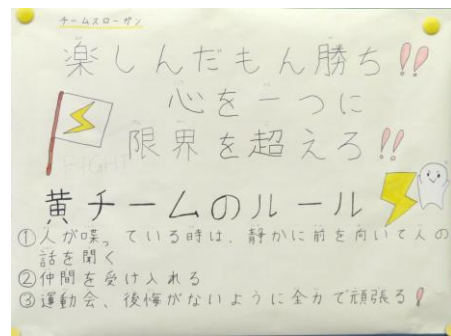 チームスローガン
楽しんだもん勝ち!!
心を一つに
限界を超えろ!!
FIGHT
黄チームのルール
①人が喋っている時は、静かに前を向いて人の
話を聞く
②仲間を受け入れる
③運動会、後悔がないように全力で頑張る!